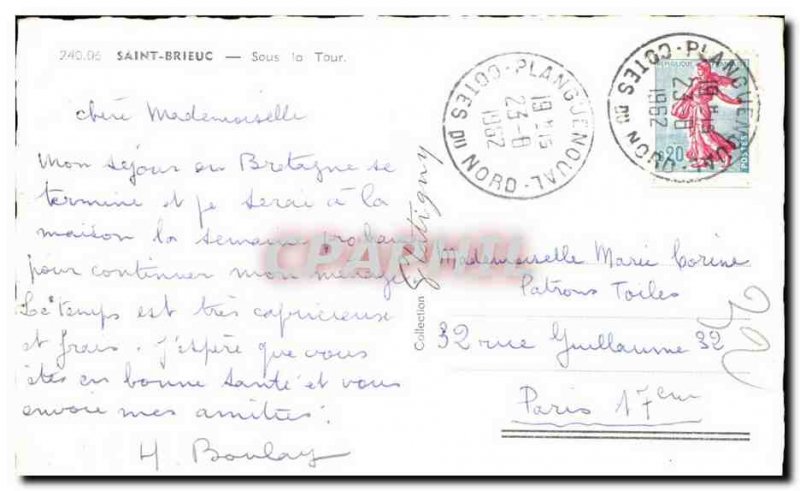 240.06 SAINT-BRIEUC — Sous la Tour.
chère Mademoiselle
Mon séjour en Bretagne se
termine et je serai à la
maison la semaine prochaine
pour continuer mon ménage
Le temps est très capricieuse
et frais. J'espère que vous
êtes en bonne santé et vous
envoie mes amitiés.
H Boulay
Collection
CPARAMA
PLANGUENOUAL
19H15
23-8
1962
COTES DU NORD
PLANGUENOUAL
19H15
23-8
1962
COTES DU NORD
REPUBLIQUE FRANCAISE
0,20
POSTES
Mademoiselle Marie Corine
Patrons Toiles
32 rue Guillaume 32
Paris 17em